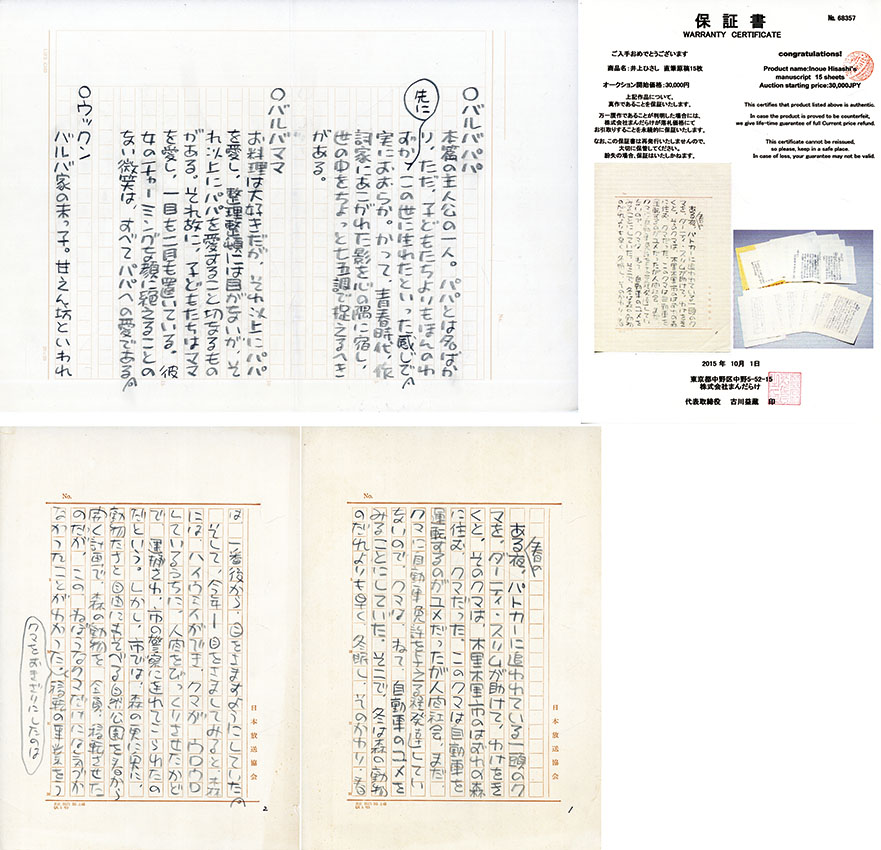 ○バルバパパ
本篇の主人公の一人。パパとは名ばか
り、ただ、子どもたちよりもほんのわ
先に
ずか、この世に生れたといった感じで、
実におおらか。かつて、青春時代、作
詞家にあこがれた影を心の隅に宿し、
世の中をちょっと七五調で捉えるへき
がある。
○バルバママ
お料理は大好きだが、それ以上にパパ
を愛し、整理整頓には目がないが、そ
れ以上にパパを愛すること切なるもの
がある。それ故に、子どもたちはママ
を愛し、一目も二目も置いている。彼
女のチャーミングな顔に絶えることの
ない微笑は、すべてパパへの愛である。
○ウックン
バルバ家の末っ子。甘えん坊といわれ
保証書
WARRANTY CERTIFICATE
№ 68357
ご入手おめでとうございます
商品名：井上ひさし 直筆原稿15枚
オークション開始価格：30,000円
上記作品について、
真作であることを保証いたします。
万一贋作であることが判明した場合には、
株式会社まんだらけが落札価格にて
お引取りすることを永続的に保証いたします。
なお、この保証書は再発行いたしませんので、
大切に保管してください。
紛失の場合、保証はいたしかねます。
congratulations!
Product name:Inoue Hisashi's
manuscript 15 sheets
Auction starting price:30,000JPY
This certifies that product listed above is authentic.
In case the product is proved to be counterfeit,
we give life-time guarantee of full Current price refund.
This certificate cannot be reissued,
so please, keep in a safe place.
In case of loss, your guarantee may not be valid.
2015 年 10月 1日
東京都中野区中野5-52-15
株式会社まんだらけ
代表取締役 古川益蔵 印
No.
春の
ある夜、パトカーに追われている一頭のク
マを、ダーティ・スリムが助けて、わけをき
くと、そのクマは、木里木里市のはずれの森
に住む、クマだった。このクマは自動車を
運転するのがユメだったが人間社会、まだ、
クマに自動車免許を与える程発達してい
ないので、クマは、ねて、自動車のユメを
みることにしていた。そこで、冬は森の動物
のだれよりも早く、冬眠し、そのかわり、春
日本放送協会
1
No.
は、一番後から、目をさますようにしていた。
そして、今年―目をさましてみると、森
には、ハイウェイができ、クマが、ウロウロ
しているうちに、人間をびっくりさせたかど
で、逮捕され、市の警察に連れてこられたの
だという。しかし、市では、森の
動物たちと
自然公園を
開く計画で、森の動物を、全員、移転させた
のだが、この、ねぼうなクマだけには
なかったことがわかった。
クマをおきざりにしたのは
日本放送協会
2